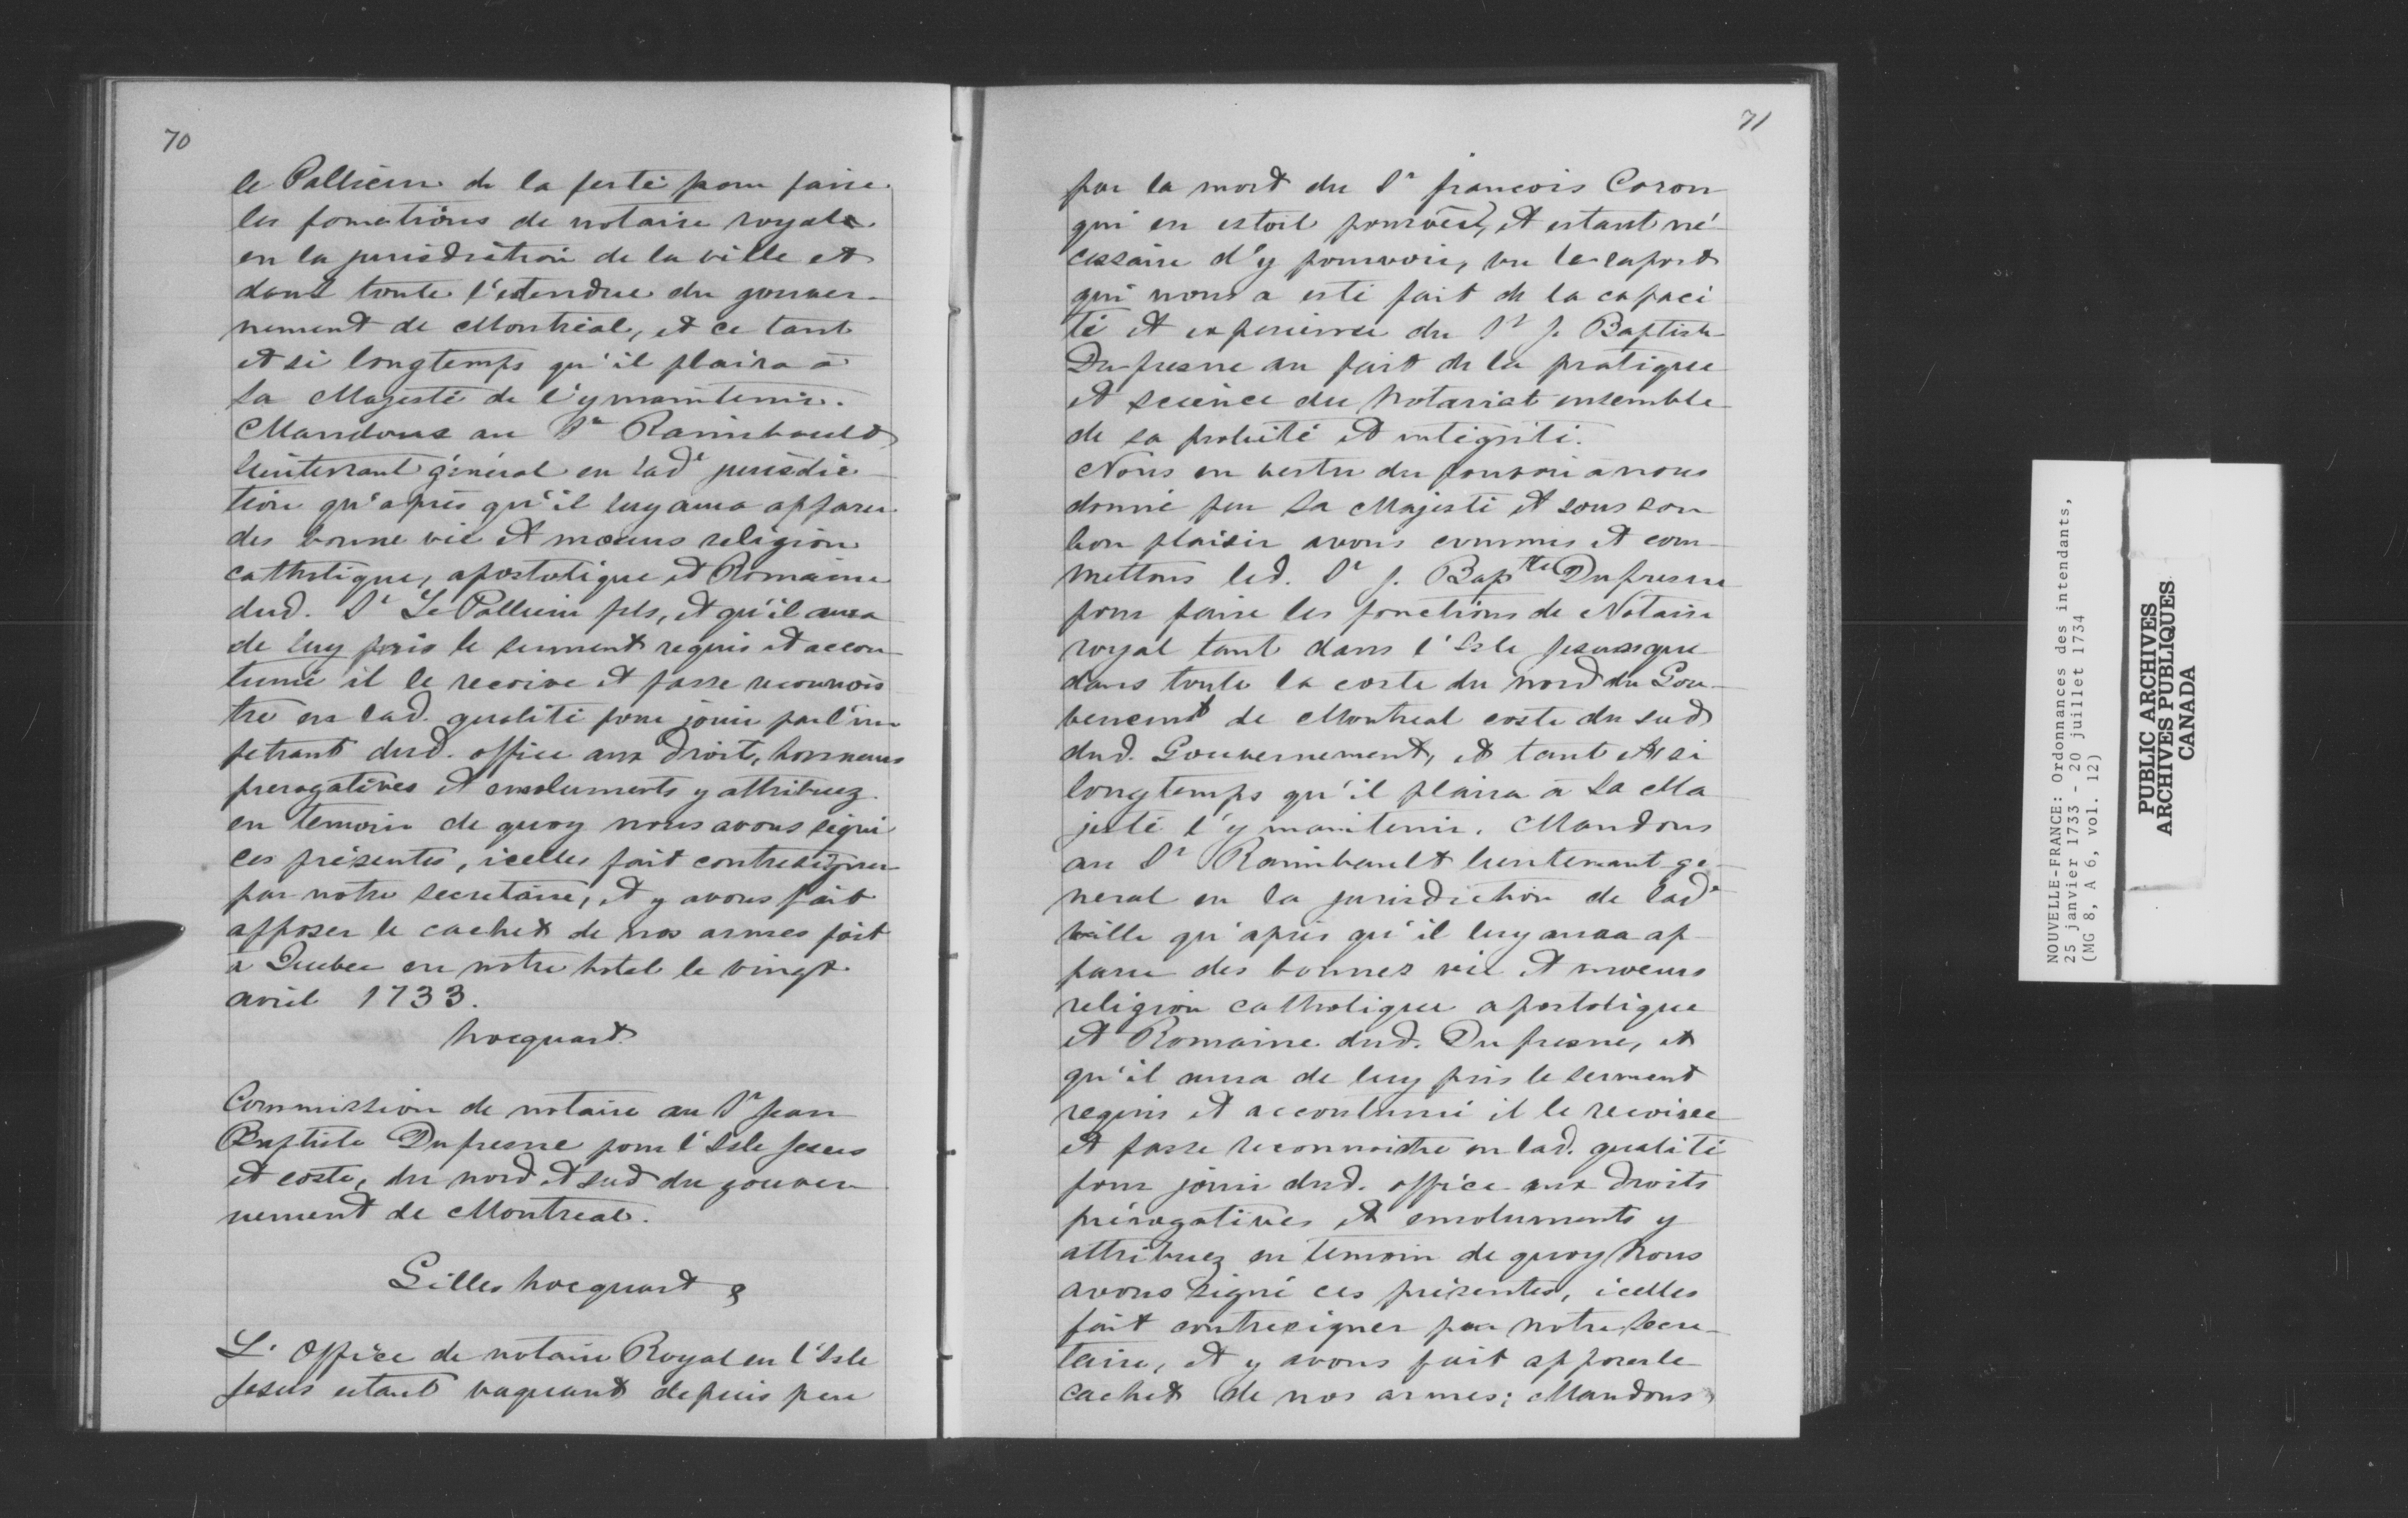 70
le Pallieur de la ferté pour faire
les fonctions de notaire royale
en la jurisdiction de la ville et
dans toute l'etendue du gouver-
nement de Montréal, et ce tant
et si longtemps qu'il plaira à
Sa Majesté de l'y maintenir.
Mandons au Sr Raimbault
lieutenant général en lade jurisdic-
tion qu'après qu'il luy aura apparu
des bonne vie et mœurs religion
catholique, apostolique et Romaine
dud. Sr Le Pallieur fils, et qu'il aura
de luy pris le serment requis et accou-
tumé il le reçoive et fasse reconnois
tre en lad. qualité pour jouir par l'im
petrant dud. office aux droits, honneurs
prerogatives et emoluments y attribuez.
en temoin de quoy nous avons signé
ces présentes, icelles fait contresigner
par notre secretaire, et y avons fait
apposer le cachet de nos armes fait
à Quebec en notre hotel le vingt
avril 1733.
hocquart
Commission de notaire au Sr Jean
Baptiste Dufresne pour l'Isle Jesus
et coste, du nord et sud du gouver
nement de Montreal.
Gilles hocquart &
L'office de notaire Royal en l'Isle
Jesus estant vaquant depuis peu
71
par la mort du Sr françois Coron
qui en estoit pourvëu, et estant né-
cessaire d'y pourvoir, vu le raport
qui nous a esté fait de la capaci
té et experience du Sr J. Baptiste
Dufresne au fait de la pratique
et science du Notariat ensemble
de sa probité et intégrité.
Nous en vertu du pouvoir à nous
donné par Sa Majesté et sous son
bon plaisir avons commis et com-
mettons led. Sr J. Bapte Dufresne
pour faire les fonctions de Notaire
royal tant dans l'Isle Jesus que
dans toute la coste du nord du Gou-
vernemt de Montreal coste du sud
dud. Gouvernement, et tant et si
longtemps qu'il plaira à Sa Ma
jesté l'y maintenir. Mandons
au Sr Raimbault lieutenant gé-
neral en la jurisdiction de lade
ville qu'après qu'il luy aura ap-
paru des bonnes vie et moeurs
religion catholique apostolique
et Romaine dud. Dufresne, et
qu'il aura de luy pris le serment
requis et accoutumé il le reçoive
et fasse reconnoistre en lad. qualité
pour jouir dud. office aux droits
prérogatives et emoluments y
attribuez en temoin de quoy Nous
avons signé ces présentes, icelles
fait contresigner par notre Secre-
taire, et y avons fait apposer le
cachet de nos armes; Mandons
NOUVELLE-FRANCE: Ordonnances des intendants,
25 janvier 1733 - 20 juillet 1734
(MG 8, A 6, vol. 12)
PUBLIC ARCHIVES
ARCHIVES PUBLIQUES
CANADA